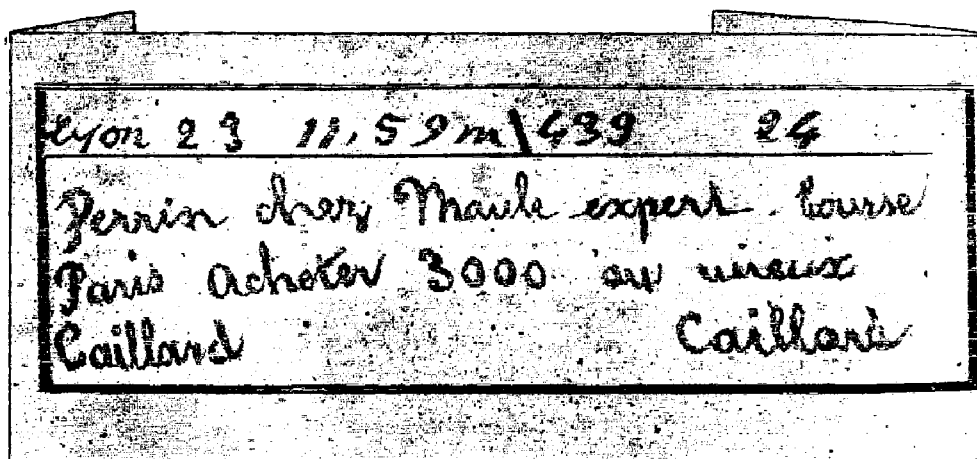 Lyon 23 11,59m 439 24
Perrin chez Maule expert bourse
Paris Achoter 3000 au mieux
Caillard Caillard